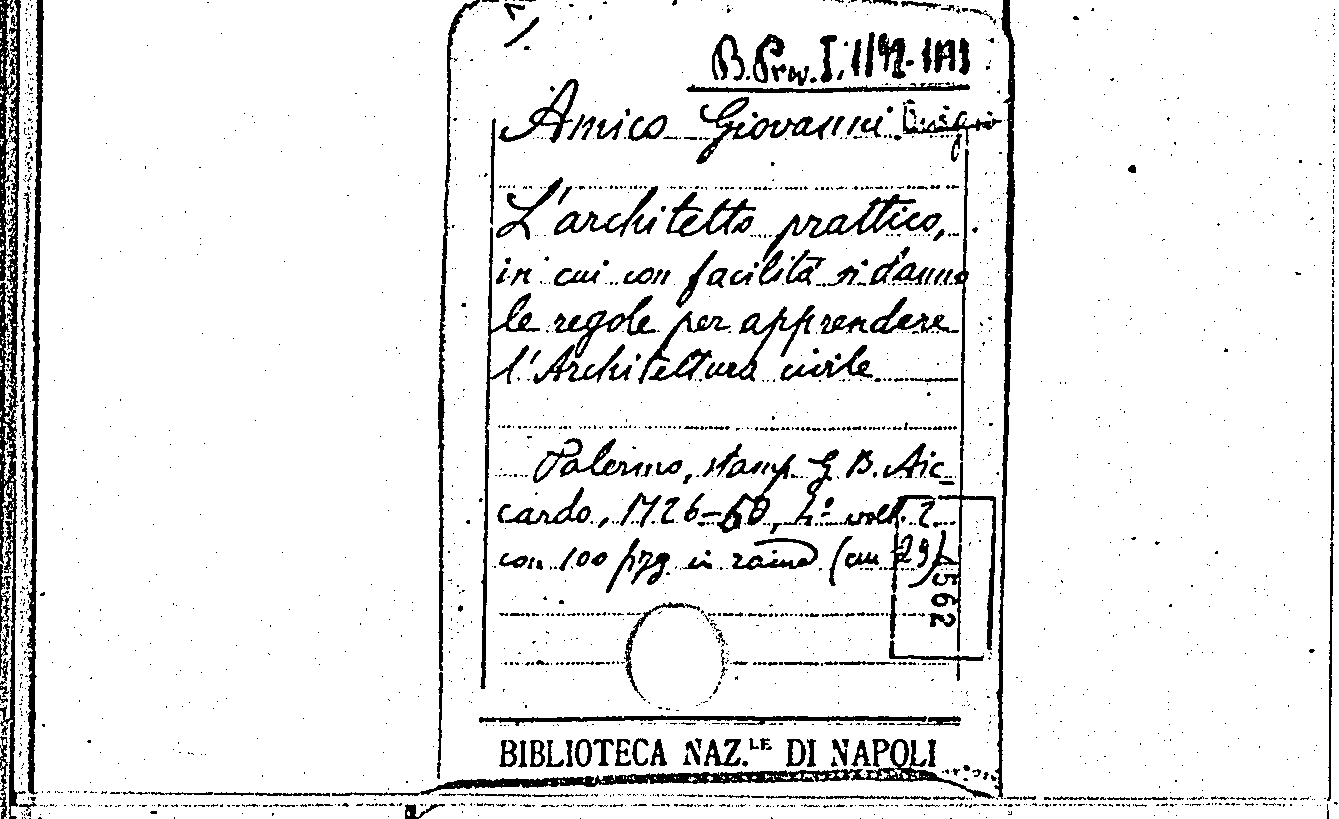 B. Prov. I. 1/92-193
Amico Giovanni
L'architetto prattico,
in cui con facilità si danno
le regole per apprendere
l'Architettura civile
Palermo, stamp. G. B. Aic-
cardo, 1726-50, 4º voll. 2
con 100 pzg in rame (cm 29)
4562
BIBLIOTECA NAZ.LE DI NAPOLI